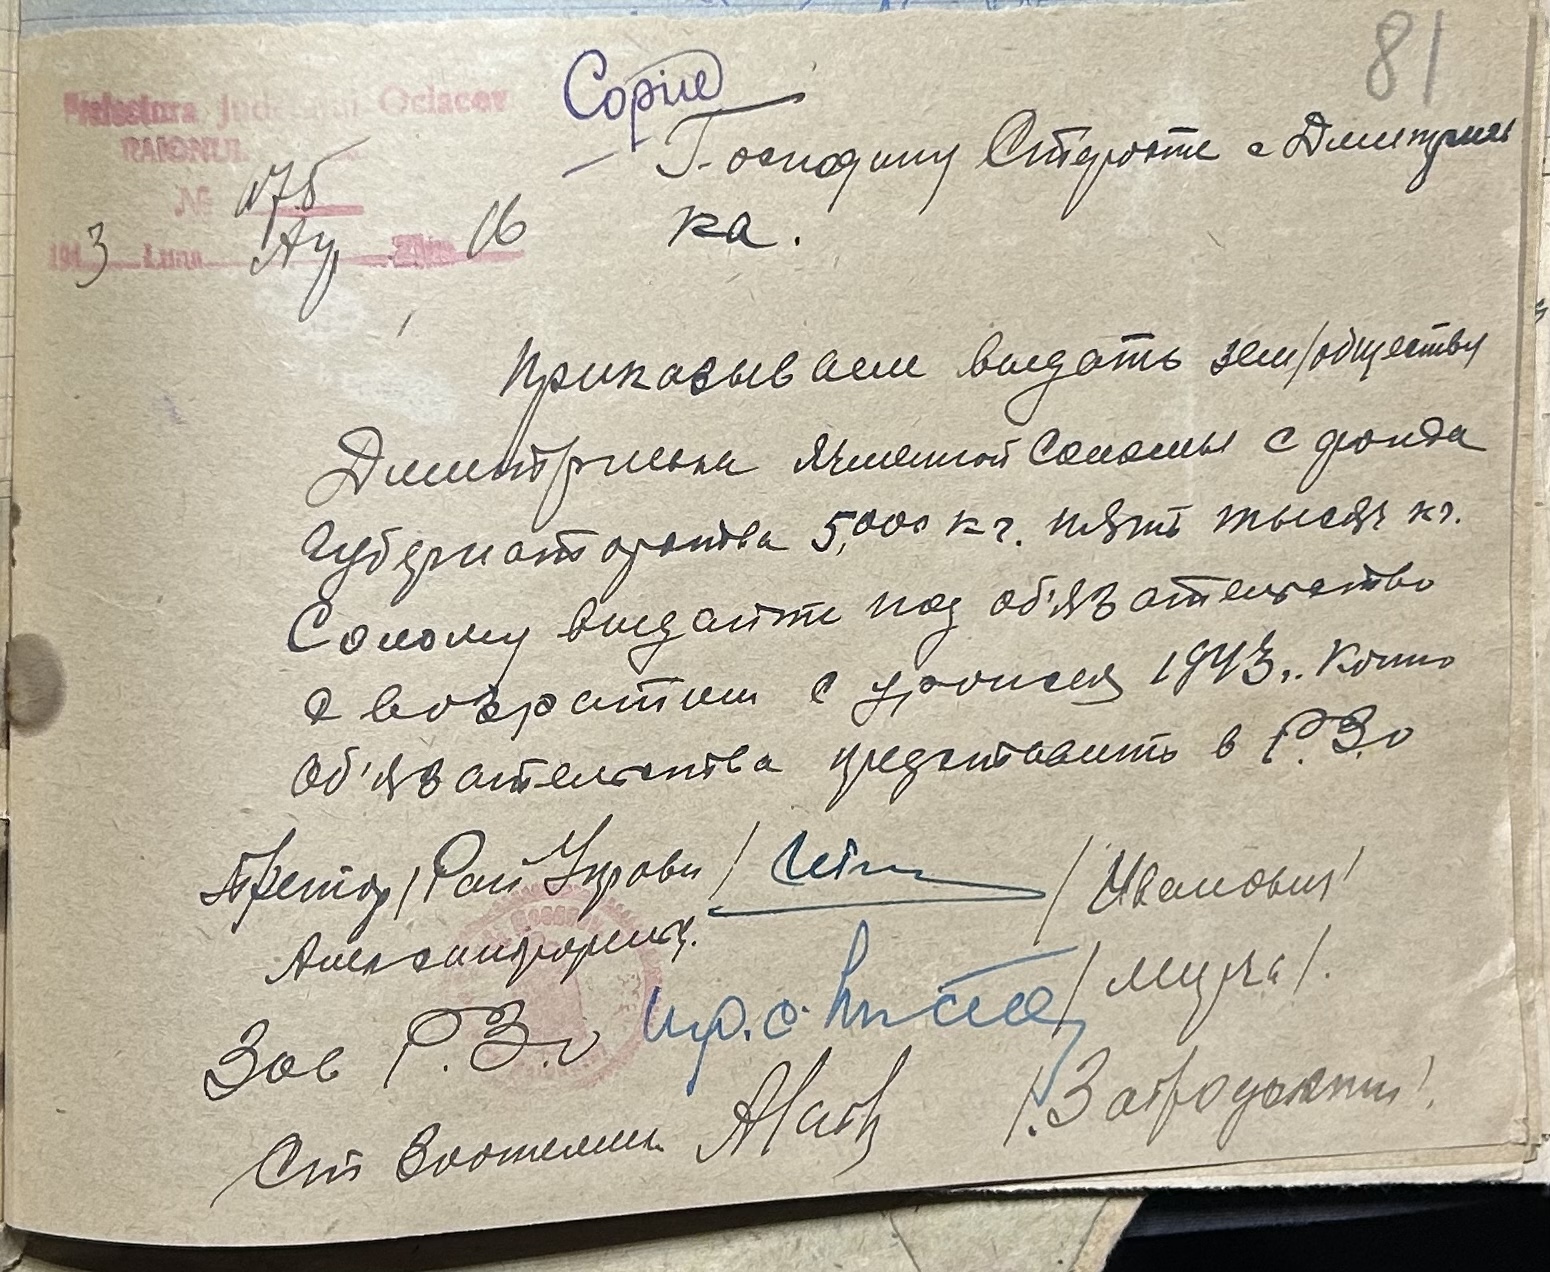 81
Copie
Prefectura Judetului Oceacov
RAIONUL
№ 175
1943 Luna Ziua 16
Господину Старосте с Дмитриев
ка.
Приказываем выдать зем/обществу
Дмитриевка ячменной соломы с фонда
Губернаторства 5,000 кг. пять тысяч кг.
Солому выдайте под об'язательство
с возвратом с урожая 1943г. копию
об'язательства представить в Р.З.о
Претор /Рай Управы / / Иванович/
Александрфельд.
Зав Р.З.о /Мурга/.
Ст Зоотехник /Загродский/.